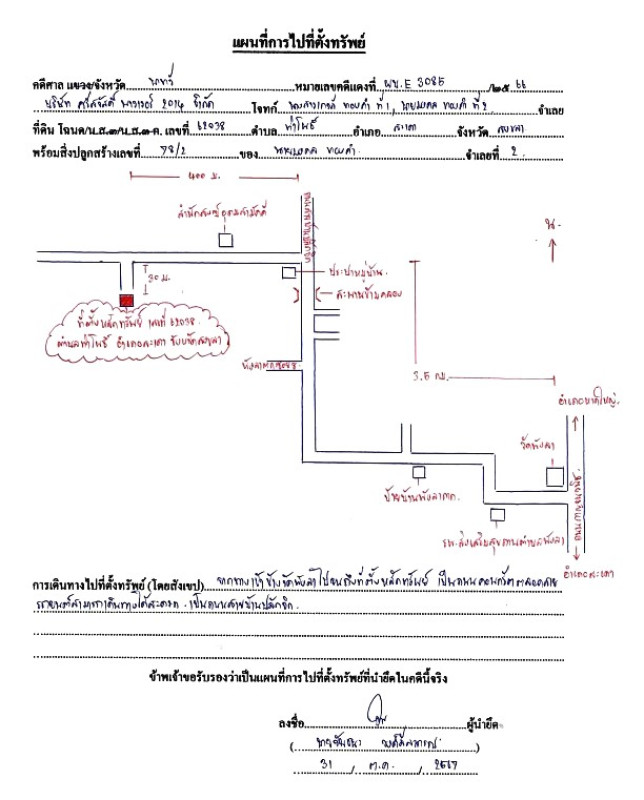 แผนที่การไปที่ตั้งทรัพย์
คดีศาล แขวง/จังหวัด นาทวี หมายเลขคดีแดงที่ ผบ.E 3085 /๒๕ 66
บริษัท ศรีสวัสดิ์ พาวเวอร์ 2014 จำกัด โจทก์ ทองคำ ที่ 1, นายมงคล ทองคำ ที่ 2 จำเลย
ที่ดิน โฉนด/น.ส.๓/น.ส.๓ ก. เลขที่ 62038 ตำบล ท่าโพธิ์ อำเภอ สะเดา จังหวัด สงขลา
พร้อมสิ่งปลูกสร้างเลขที่ 78/2 ของ นายมงคล ทองคำ จำเลยที่ 2
400 ม.
สำนักสงฆ์อุดมสามัคคี
น.
ประปาหมู่บ้าน
20 ม.
สะพานข้ามคลอง
ที่ตั้งหลักทรัพย์ เลขที่ 62038
ตำบลท่าโพธิ์ อำเภอสะเดา จังหวัดสงขลา
3.5 กม.
อำเภอหาดใหญ่
วัดพังลา
ป้ายบ้านพังลาตก
ถนนกาญจนวนิช
รพ.ส่งเสริมสุขภาพตำบลพังลา
อำเภอสะเดา
การเดินทางไปที่ตั้งทรัพย์ (โดยสังเขป) จากทางเข้าข้างวัดพังลาไปจนถึงที่ตั้งหลักทรัพย์ เป็นถนนคอนกรีตตลอดสาย
รถยนต์สามารถเดินทางได้สะดวก เป็นถนนสายบ้านปลักชิก
ข้าพเจ้าขอรับรองว่าเป็นแผนที่การไปที่ตั้งทรัพย์ที่นำยึดในคดีนี้จริง
ลงชื่อ ผู้นำยึด
( )
31 / ต.ค. / 2567